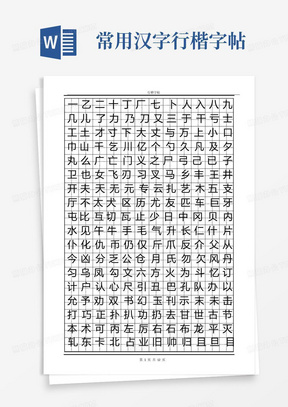 W 常用汉字行楷字帖
一乙二十丁厂七卜人入八九
几儿了力乃刀又三于干亏士
工土才寸下大丈与万上小口
巾山千乞川亿个勺久凡及夕
丸么广亡门义之尸弓己已子
卫也女飞刃习叉马乡丰王井
开夫天无元专云扎艺木五支
厅不太犬区历尤友匹车巨牙
屯比互切瓦止少日中冈贝内
水见午牛手毛气升长仁什片
仆化仇币仍仅斤爪反介父从
今凶分乏公仓月氏勿欠风丹
匀乌凤勾文六方火为斗忆订
计户认心尺引丑巴孔队办以
允予劝双书幻玉刊示末未击
打巧正扑扒功扔去甘世古节
本术可丙左厉右石布龙平灭
轧东卡北占业旧帅归且旦目